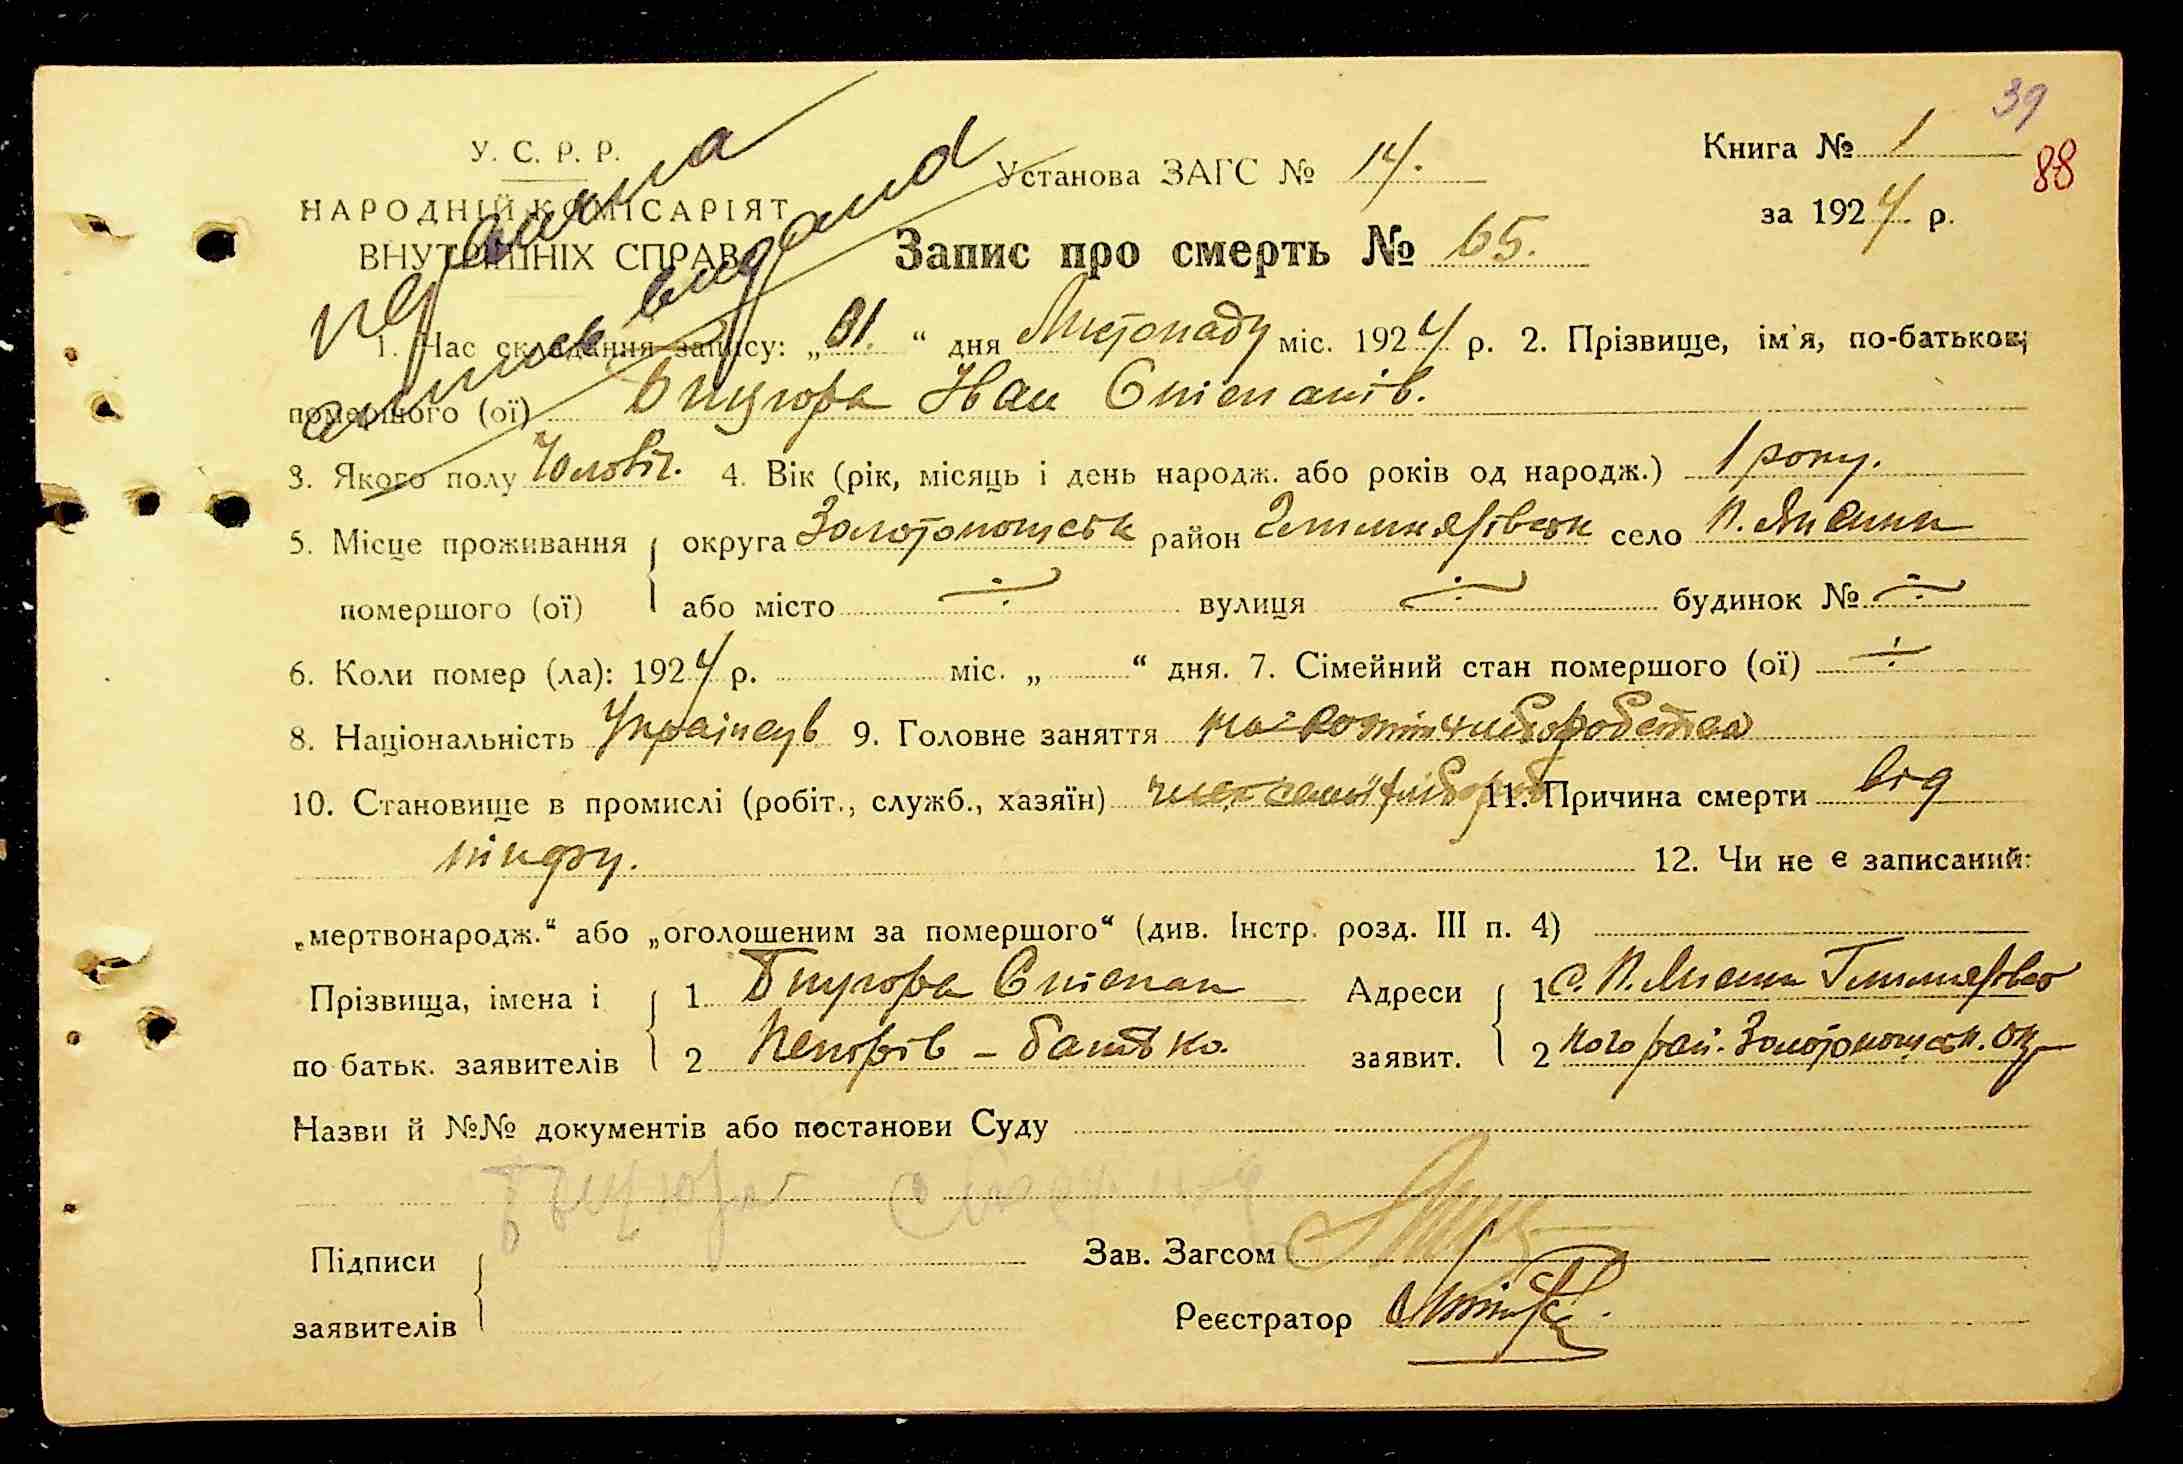 39
88
У. С. Р. Р.
НАРОДНІЙ КОМІСАРІЯТ
ВНУТРІШНІХ СПРАВ
Установа ЗАГС № 14.
Книга № 1
за 1924 р.
Запис про смерть № 65.
видана
1. Час складання запису: „31. “ дня Листопаду міс. 1924 р. 2. Прізвище, ім'я, по-батькові
помершого (ої) Бицюра Іван Степанів.
3. Якого полу Чоловіч. 4. Вік (рік, місяць і день народж. або років од народж.) 1 року.
5. Місце проживання { округа Золотоношськ район Гельмязівськ село П.
помершого (ої) або місто ÷ вулиця ÷ будинок № ÷
6. Коли помер (ла): 1924 р. міс. „ “ дня. 7. Сімейний стан помершого (ої) ÷
8. Національність Українець 9. Головне заняття
10. Становище в промислі (робіт., служб., хазяїн) член сем'ї 11. Причина смерти від
тифу. 12. Чи не є записаний:
„мертвонародж.“ або „оголошеним за помершого“ (див. Інстр. розд. III п. 4)
Прізвища, імена і { 1 Бицюра Степан Адреси { 1 С. П. Гельмязівсь
по батьк. заявителів 2 – батько. заявит. 2 кого рай. Золотоношськ. ок
Назви й №№ документів або постанови Суду
Бицюра
Підписи { Зав. Загсом
заявителів Реєстратор